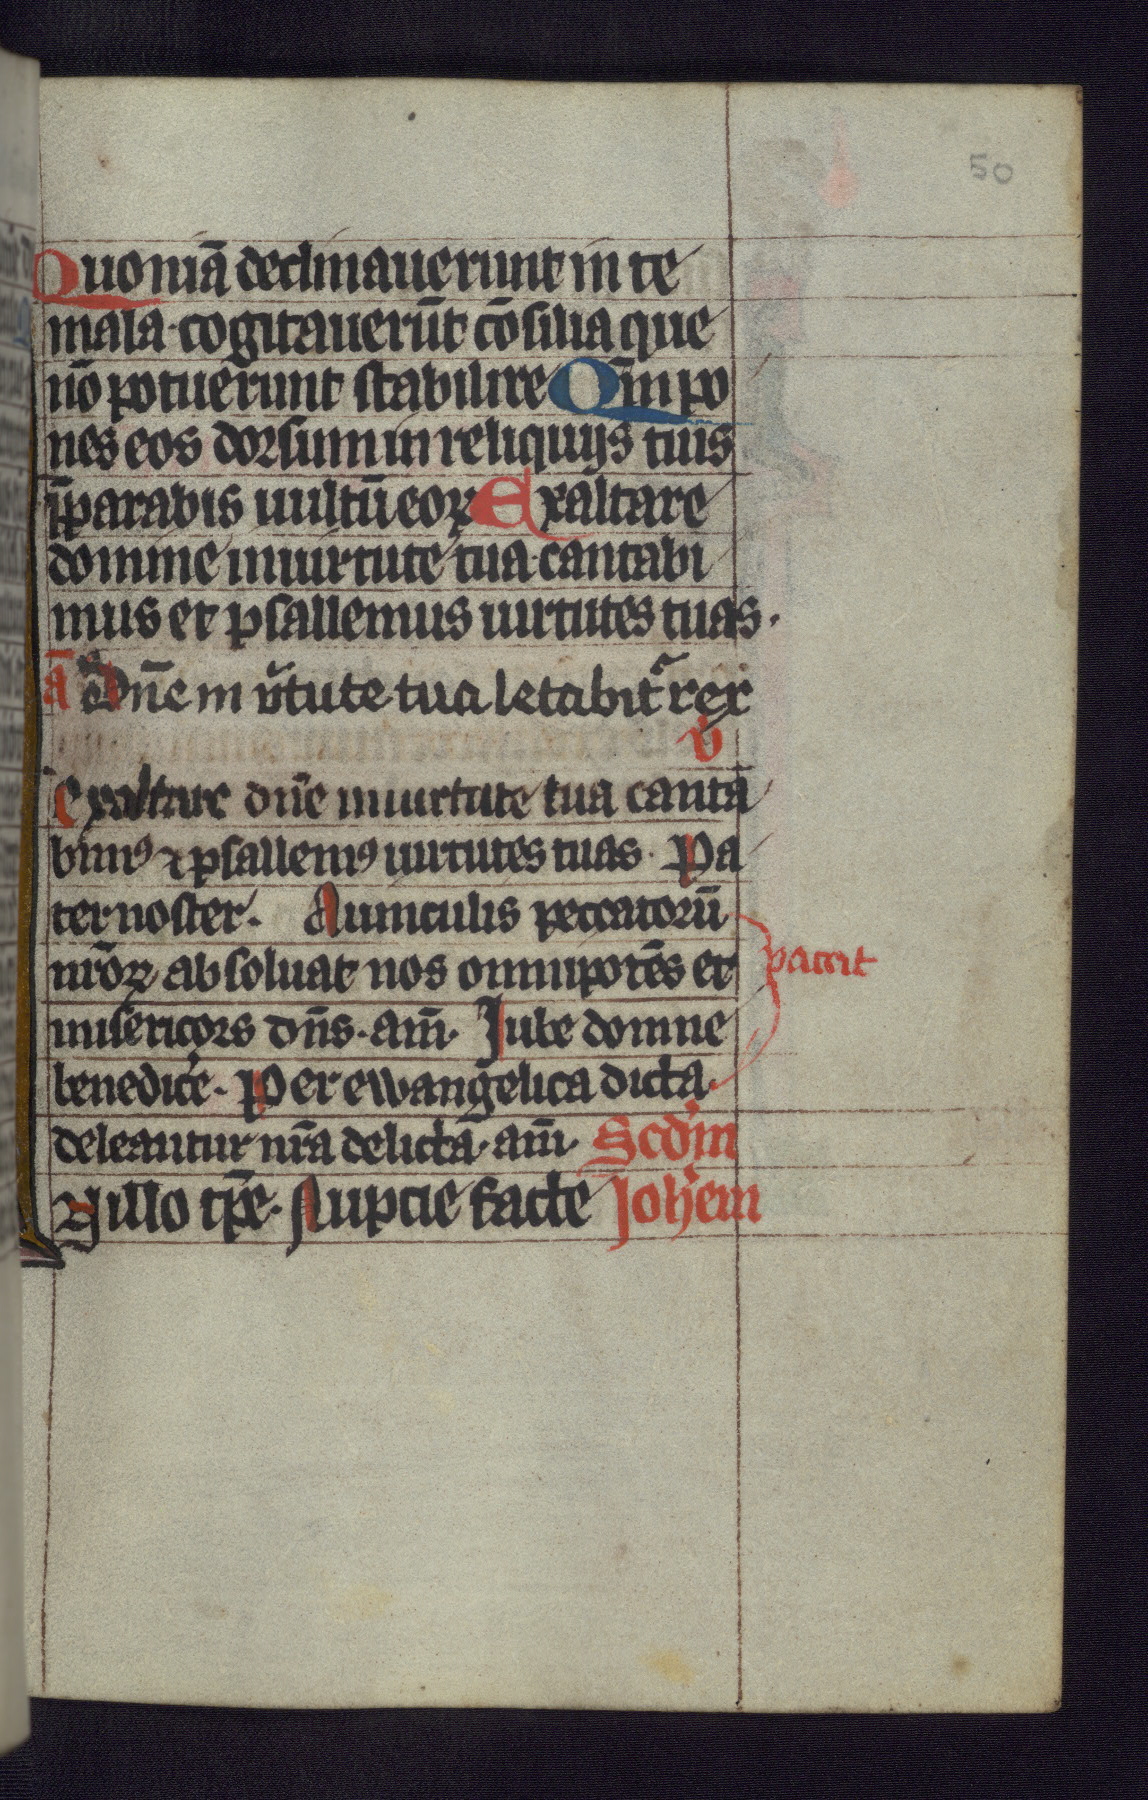 50
Quoniā declinauerunt in te
mala·cogitauerūt cōsilia que
nō potuerunt stabilire Qm̄ po
nes eos dorsum in reliquijs tuis
p̄parabis uultū eoꝝ Exaltare
domine in uirtute tua·cantabi
mus et psallemus uirtutes tuas·
ā Dn̄e in v̄tute tua letabit᷑ rex
v̄
exaltare dn̄e in uirtute tua canta
bimꝰ ⁊ psallemꝰ uirtutes tuas· Pa
ter noster· A uinculis peccatorū
nr̄oꝝ absoluat nos omnipotēs et
misericors dn̄s·am̄· Iube domne
benedic̄e· Per ewangelica dicta·
deleantur nr̄a delicta·am̄· Scd̄m
In illo tp̄e· Nupcie facte Ioh̄em